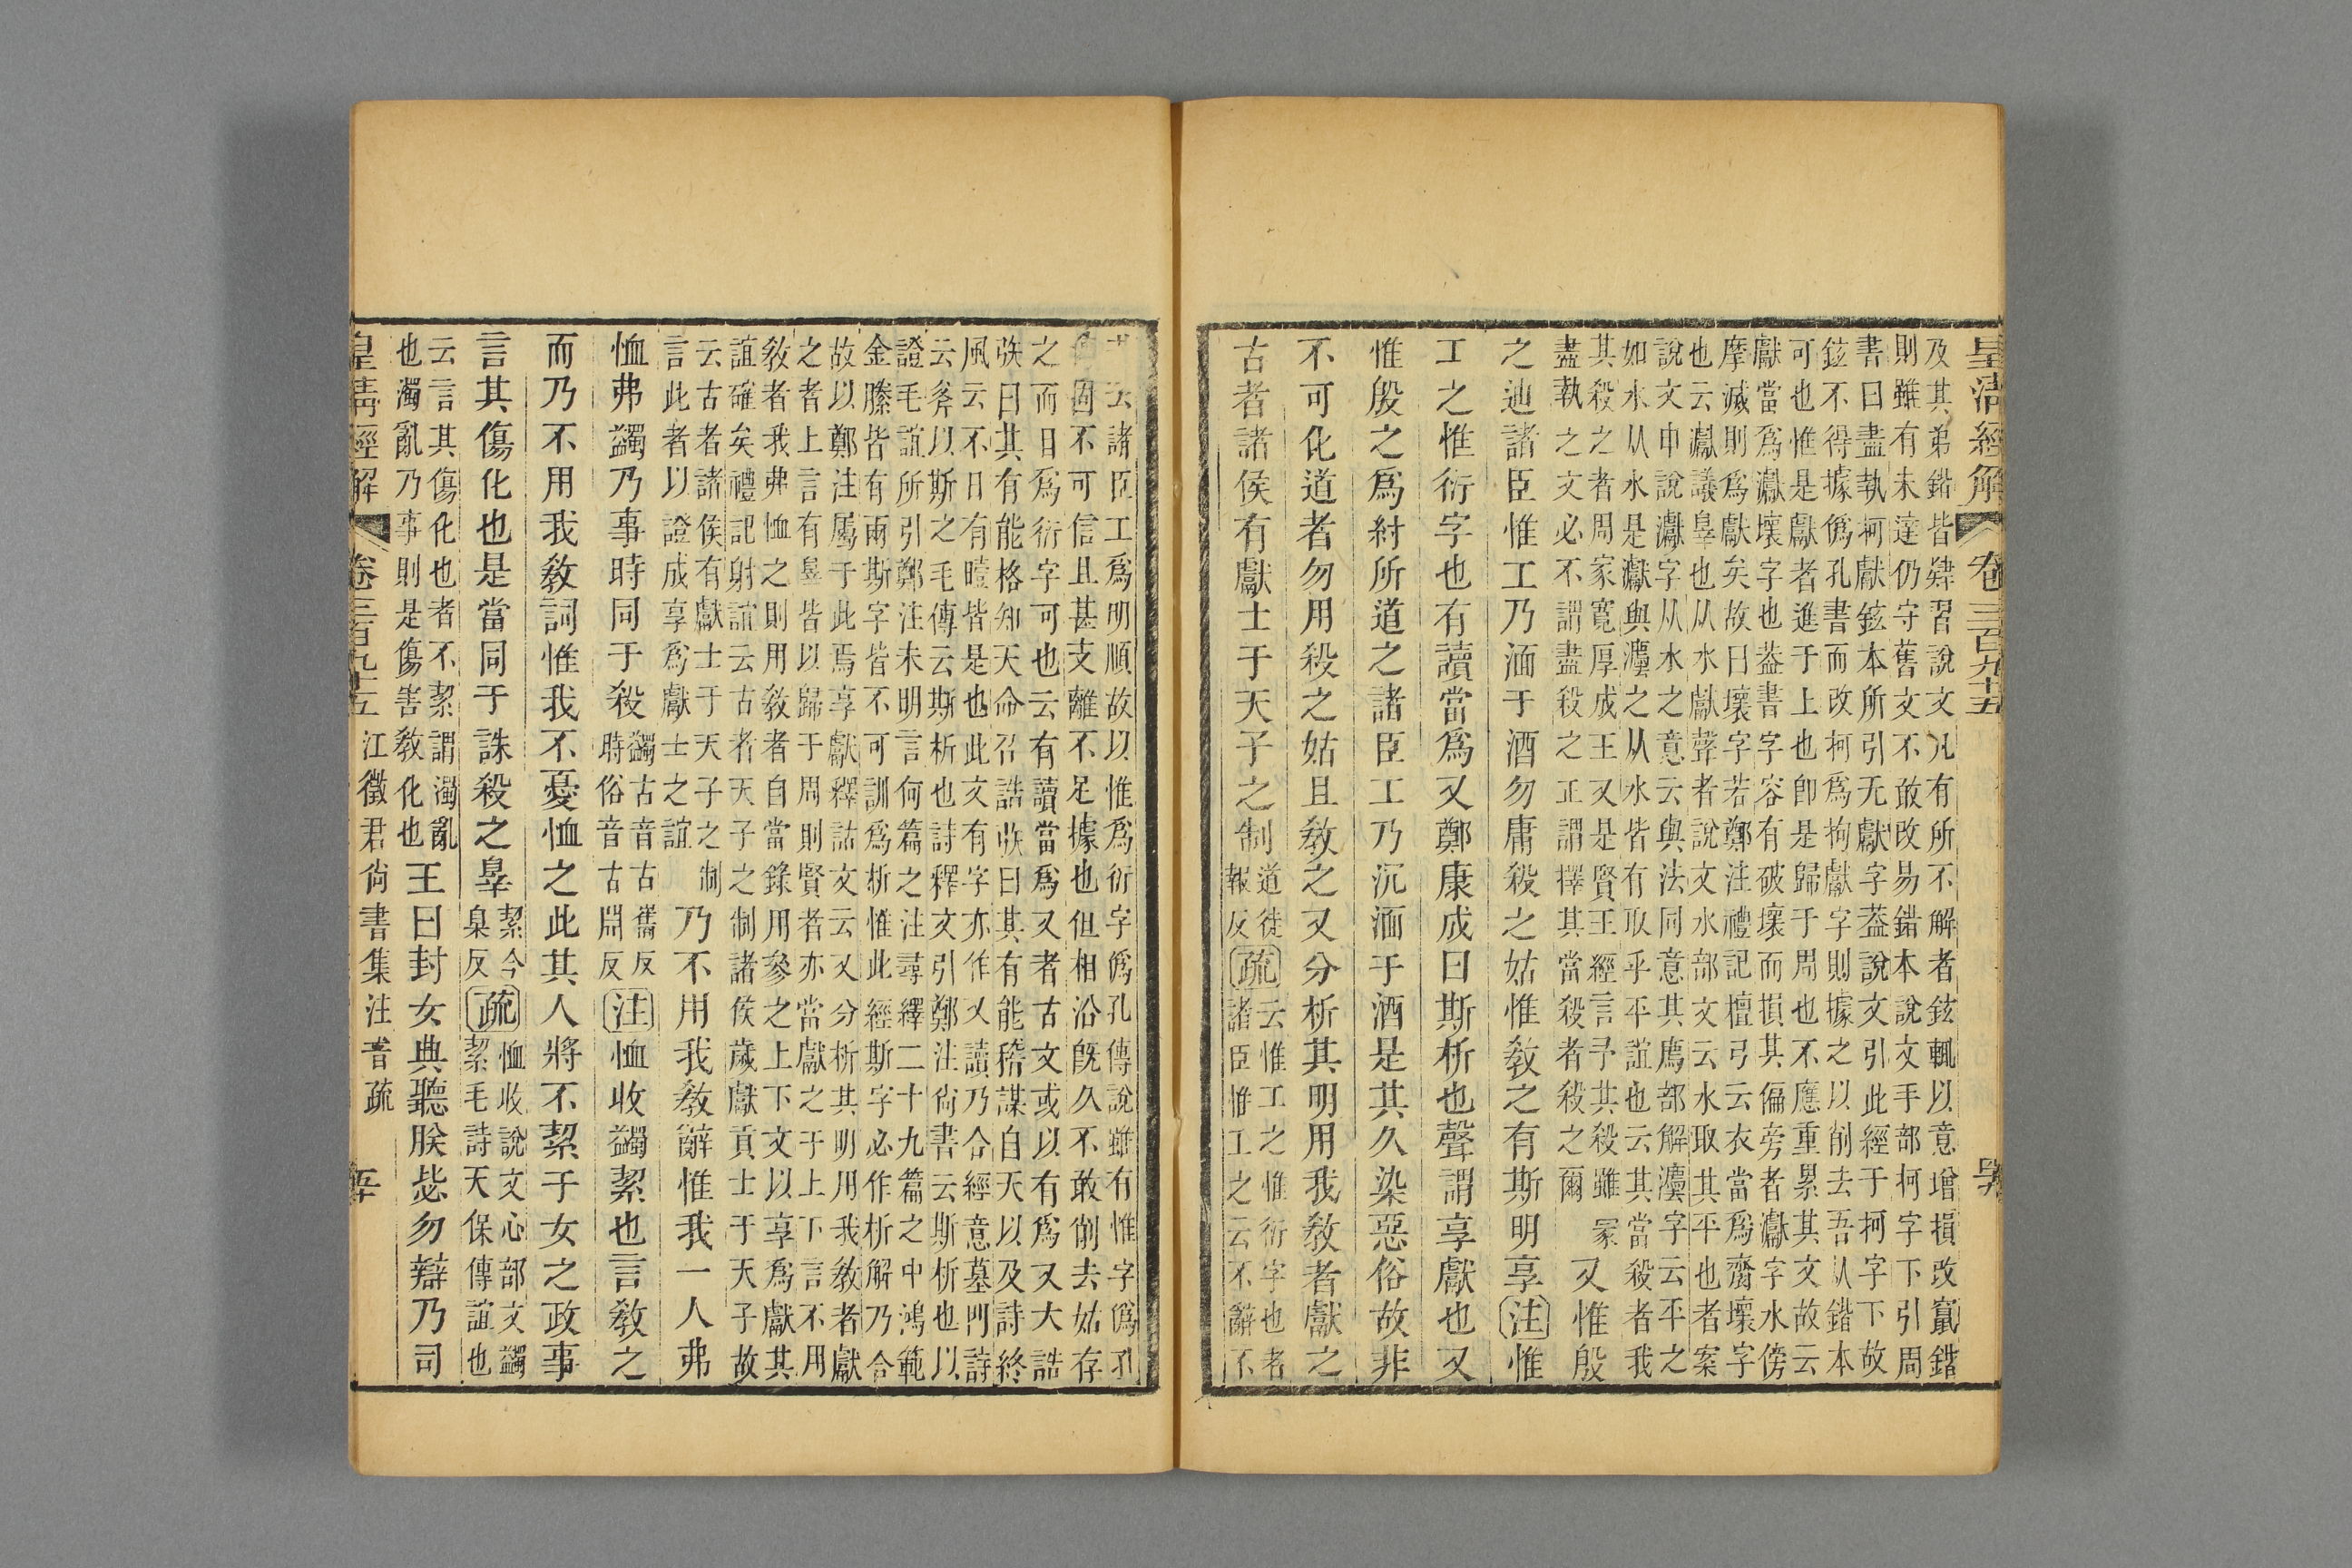 皇清經解 卷三百九十五
及其弟鍇皆肄習說文凡有所不解者鉉輒以意增損改竄鍇
則雖有未達仍守舊文不敢改易錯本說文手部柯字下引周
書曰盡執柯獻鉉本所引无獻字葢說文引此經于柯字下故
鉉不得據僞孔書而改柯爲拘獻字則據之以削去吾从鍇本
可也惟是獻者進于上也卽是歸于周也不應重累其文故云
獻當爲瀗壞字也葢書字容有破壞而損其偏旁者瀗字水傍
摩滅則爲獻矣故曰壞字若鄭注禮記檀弓云衣當爲齋壞字
也云瀗議辠也从水獻聲者說文水部文云水取其平也者案
說文申說瀗字从水之意云與法同意其廌部解灋字云平之
如水从水是瀗與灋之从水皆有取乎平誼也云其當殺者我
其殺之者周家寬厚成王又是賢王經言予其殺雖冡
盡執之文必不謂盡殺之正謂擇其當殺者殺之爾
又惟殷
之迪諸臣惟工乃湎于酒勿庸殺之姑惟教之有斯明享注惟
工之惟衍字也有讀當爲又鄭康成曰斯析也聲謂享獻也又
惟殷之爲紂所道之諸臣工乃沉湎于酒是其久染惡俗故非
不可化道者勿用殺之姑且教之又分析其明用我教者獻之
古者諸侯有獻士于天子之制
道徒
報反
疏
云惟工之惟衍字也者
諸臣惟工之云不辭不
云諸臣工爲明順故以惟爲衍字僞孔傳說雖有惟字僞孔
固不可信且甚支離不足據也但相沿旣久不敢削去姑存
之而曰爲衍字可也云有讀當爲又者古文或以有爲又大誥
弤曰其有能格知天命召誥弤曰其有能稽謀自天以及詩終
風云不日有曀皆是也此文有字亦作又讀乃合經意墓門詩
云斧以斯之毛傳云斯析也詩釋文引鄭注尙書云斯析也以
證毛誼所引鄭注未明言何篇之注尋繹二十九篇之中鴻範
金縢皆有兩斯字皆不可訓爲析惟此經斯字必作析解乃合
故以鄭注屬于此焉享獻釋詁文云又分析其明用我教者獻
之者上言有辠皆以歸于周則賢者亦當獻之于上下言不用
教者我弗恤之則用教者自當錄用參之上下文以享爲獻其
誼確矣禮記射誼云古者天子之制諸侯歲獻貢士于天子故
云古者諸侯有獻士于天子之制
言此者以證成享爲獻士之誼
乃不用我教辭惟我一人弗
恤弗蠲乃事時同于殺
蠲古音古舊反
時俗音古閞反
注恤收蠲絜也言教之
而乃不用我教詞惟我不憂恤之此其人將不絜于女之政事
言其傷化也是當同于誅殺之辠
絜今
臬反
疏
恤收說文心部文蠲
絜毛詩天保傳誼也
云言其傷化也者不絜謂濁亂
也濁亂乃事則是傷害教化也
王曰封女典聽朕毖勿辯乃司
皇清經解 卷三百九十五 江徵君尙書集注音疏